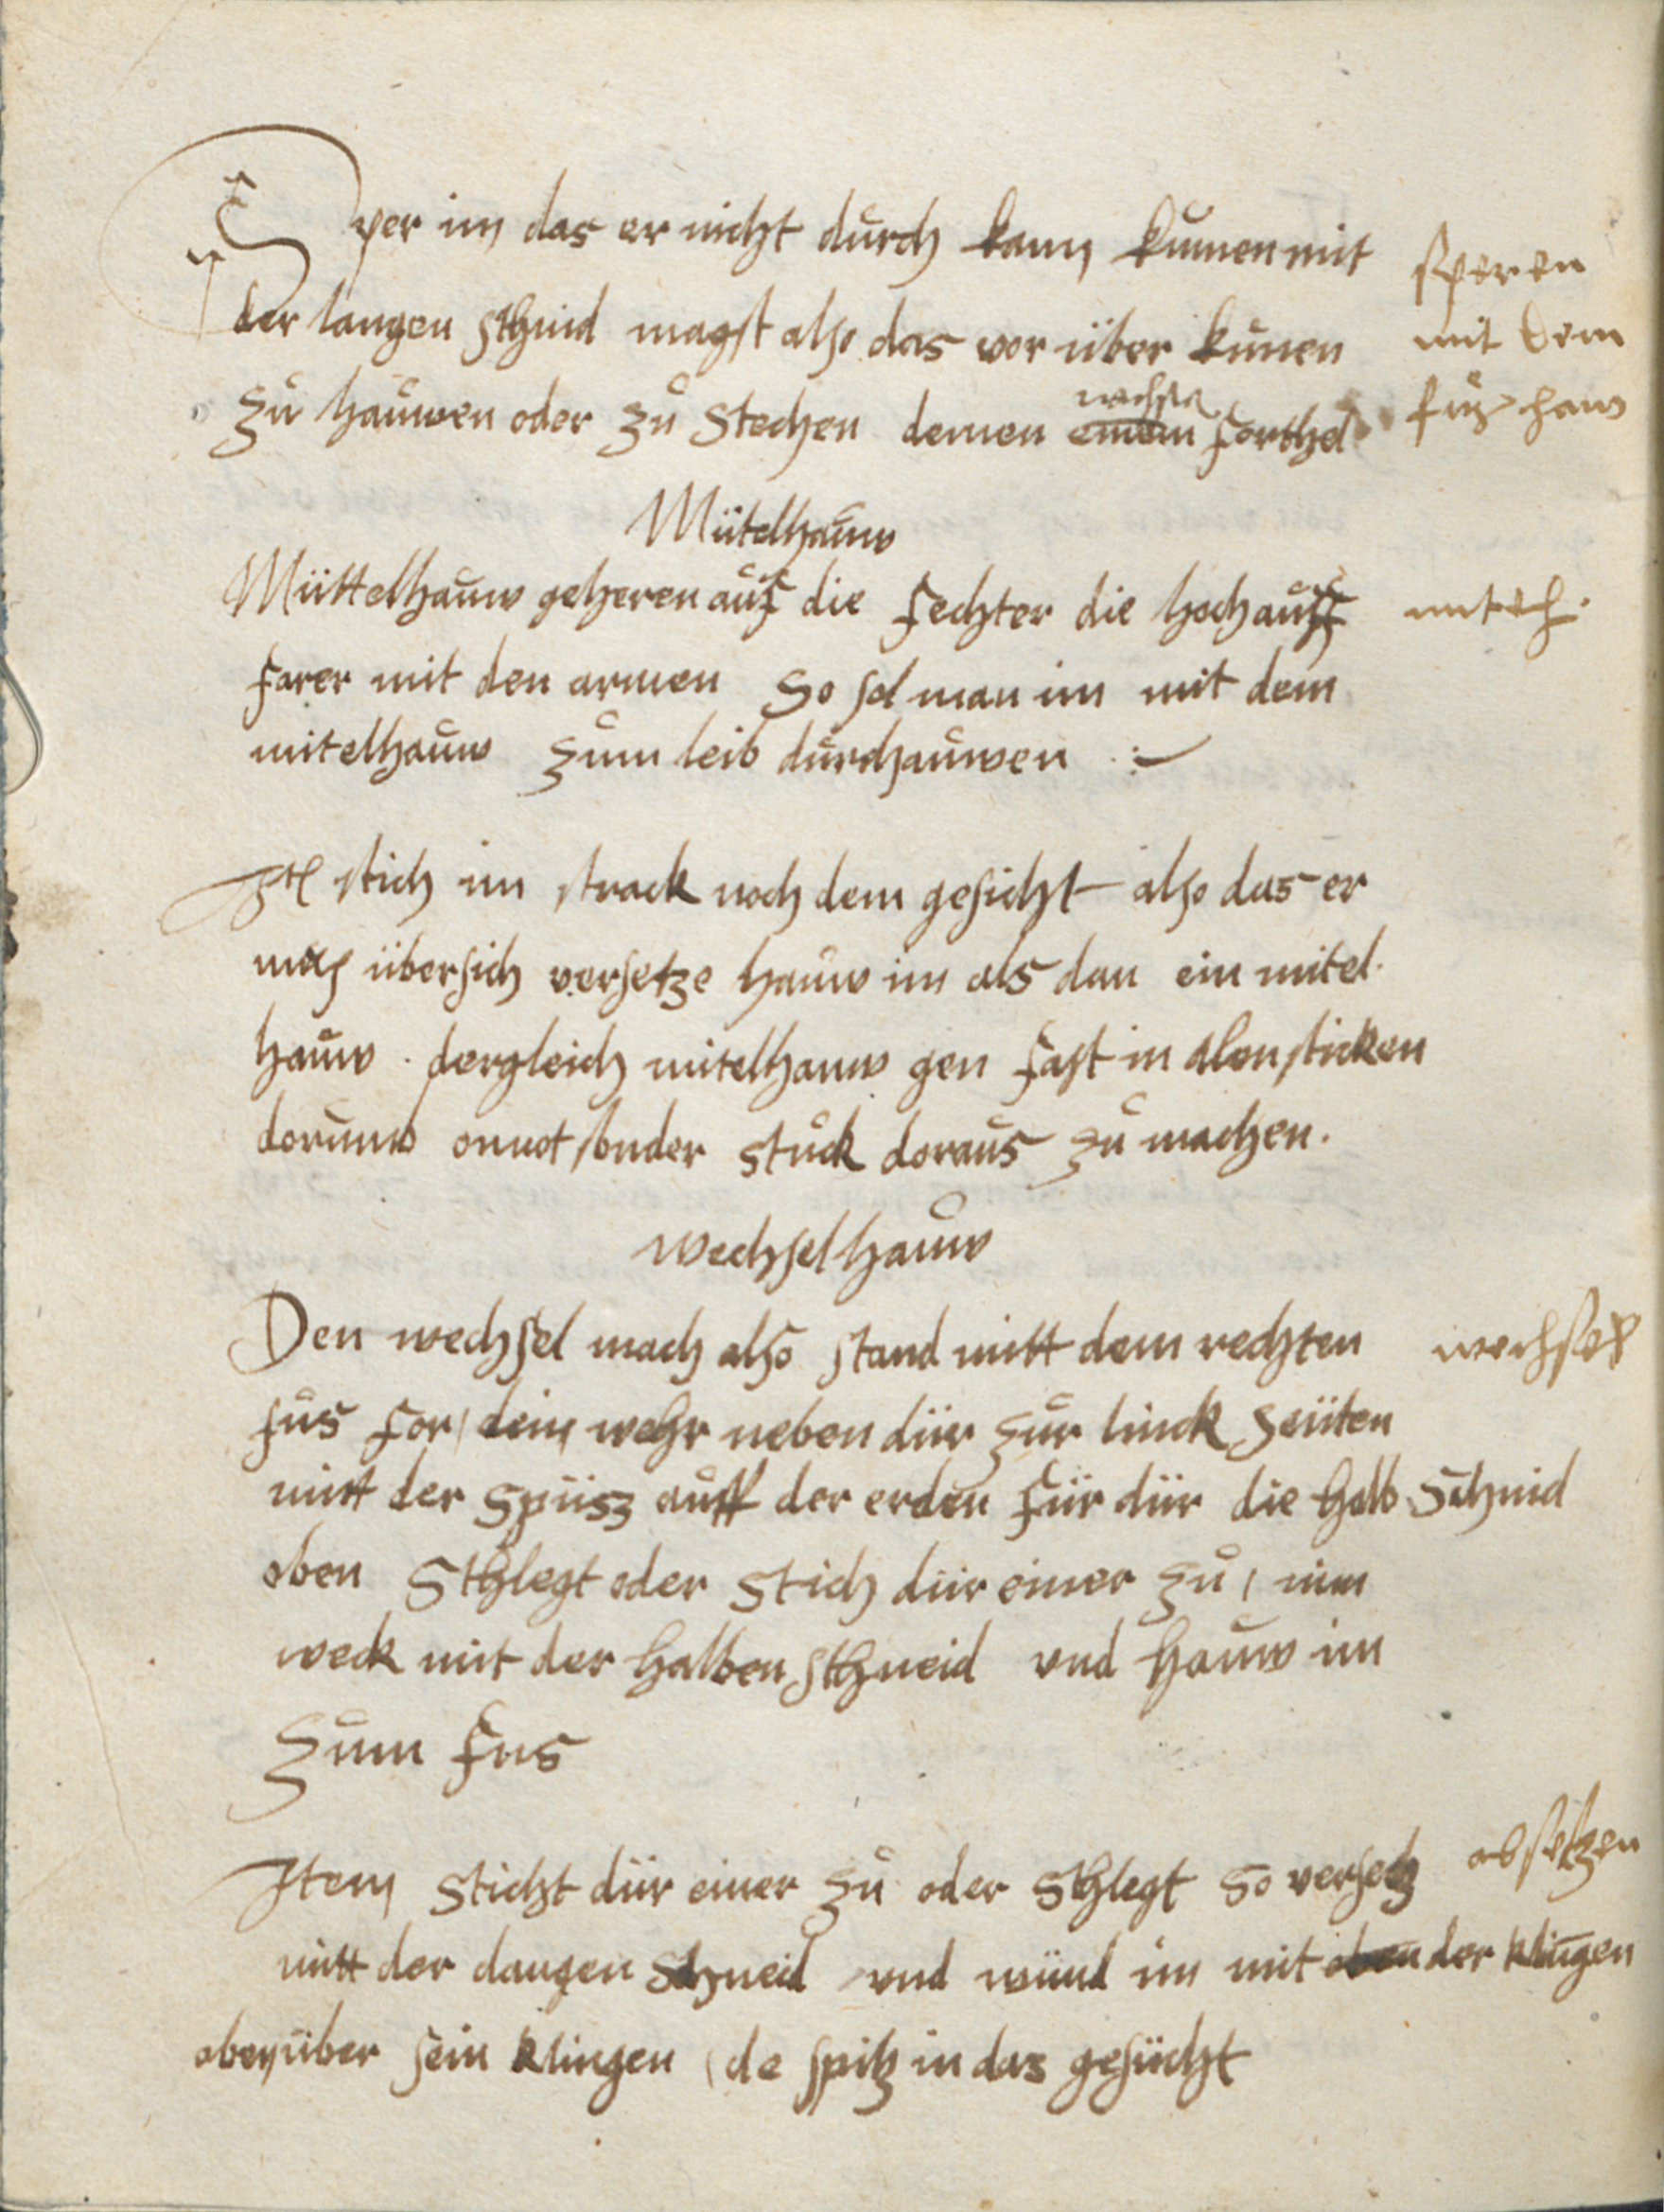 Sper im das er nicht durch kann kumen mit
der langen schnid magst also das vor über kumen
zu hauwen oder zu stechen demen einem forthel
sperenn
mit dem
Mütelhauw
Müttelhauw geheren auf die fechter die hoch auff
farer mit den armen so sol man im mit dem
mitelhauw zum leib durchauwen
Itl stich im strack noch dem gesicht also das er
mus übersich versetze hauw im als dan ein mitel
hauw . dergleich mitelhauw gen fast in alen sticken
dorumb onnot sonder stuck doraus zu machen.
wechselhauw
Den wechsel mach also stand mitt dem rechten
wechsel
fus for / dein wehr neben dür zur linck seüten
mitt der spüsz auff der erden für dür die halb schnid
oben schlegt oder stich dür einer zu / nim
weck mit der halben schneid vnd hauw im
zum fus
absetzen
Item sticht dür einer zu oder schlegt so versetz
mitt der langen schneid vnd wünd im mit oben der klingen
oben über sein klingen / de spitz in das gesücht